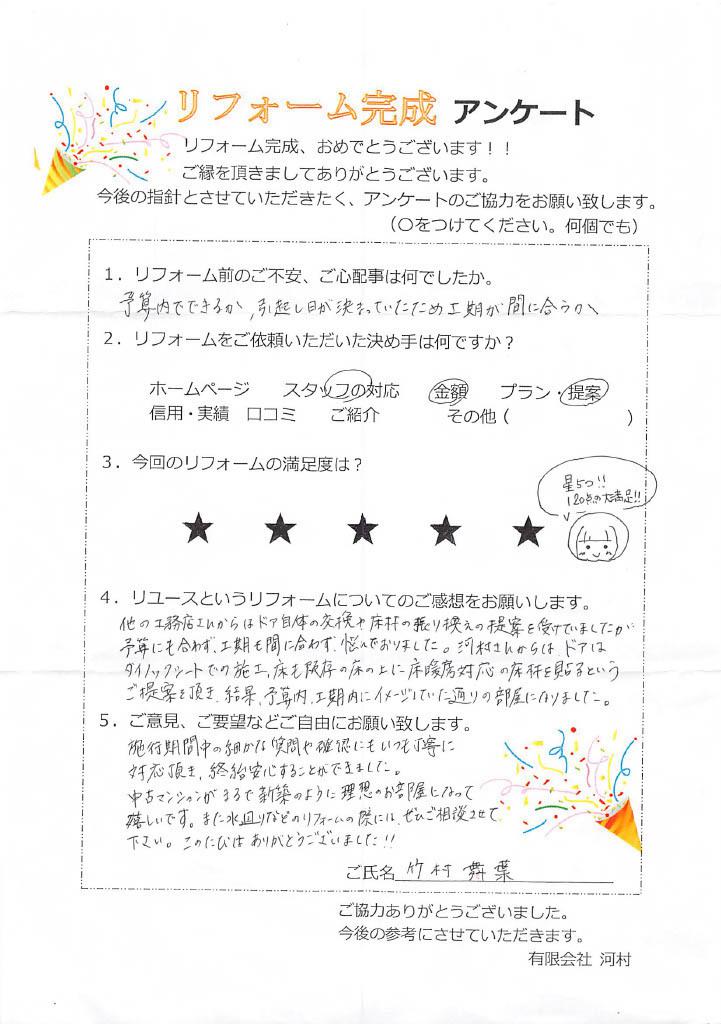 リフォーム完成 アンケート
リフォーム完成、おめでとうございます！！
ご縁を頂きましてありがとうございます。
今後の指針とさせていただきたく、アンケートのご協力をお願い致します。
（○をつけてください。何個でも）
１．リフォーム前のご不安、ご心配事は何でしたか。
予算内でできるか、引越し日が決まっていたため工期が間に合うか
２．リフォームをご依頼いただいた決め手は何ですか？
ホームページ スタッフの対応 金額 プラン・提案
信用・実績 口コミ ご紹介 その他（ ）
３．今回のリフォームの満足度は？
星5つ!!
120点の大満足!!
★ ★ ★ ★ ★
４．リユースというリフォームについてのご感想をお願いします。
他の工務店さんからはドア自体の交換や床材の張り換えの提案を受けていましたが
予算にも合わず、工期も間に合わず、悩んでおりました。河村さんからは、ドアは
ダイノックシートでの施工、床も既存の床の上に床暖房対応の床材を貼るという
ご提案を頂き、結果、予算内、工期内にイメージしていた通りの部屋になりました。
５．ご意見、ご要望などご自由にお願い致します。
施行期間中の細かな質問や確認にもいつも丁寧に
対応頂き、終始安心することができました。
中古マンションがまるで新築のように理想のお部屋になって
嬉しいです。また水廻りなどのリフォームの際には、ぜひご相談させて
下さい。このたびはありがとうございました!!
ご氏名 竹村 舞葉
ご協力ありがとうございました。
今後の参考にさせていただきます。
有限会社 河村